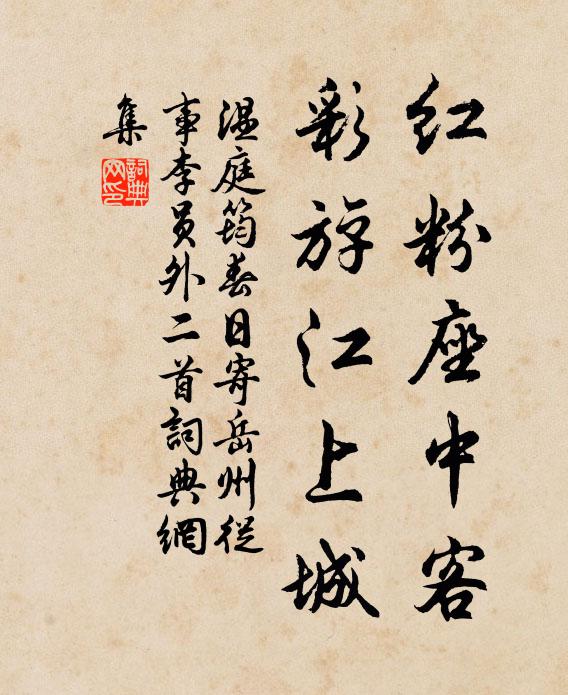 红粉座中客
彩斿江上城
温庭筠春日寄岳州從
事李員外二首詞典網
集
詞典
网印